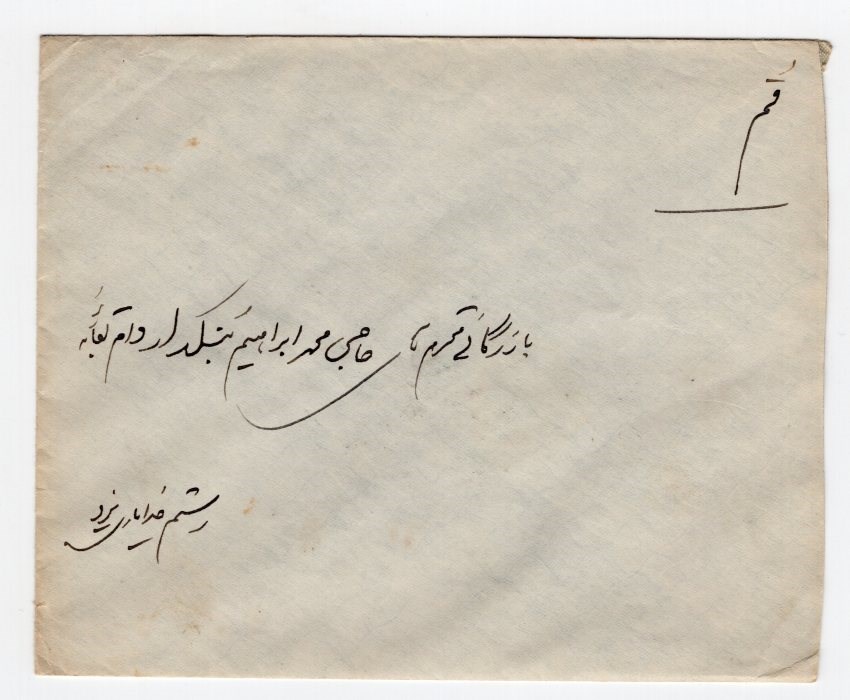 قم
بازرگانی محترم آقای حاجی محمد ابراهیم تنباکدار دام بقائه
رستم خدایاری یزد